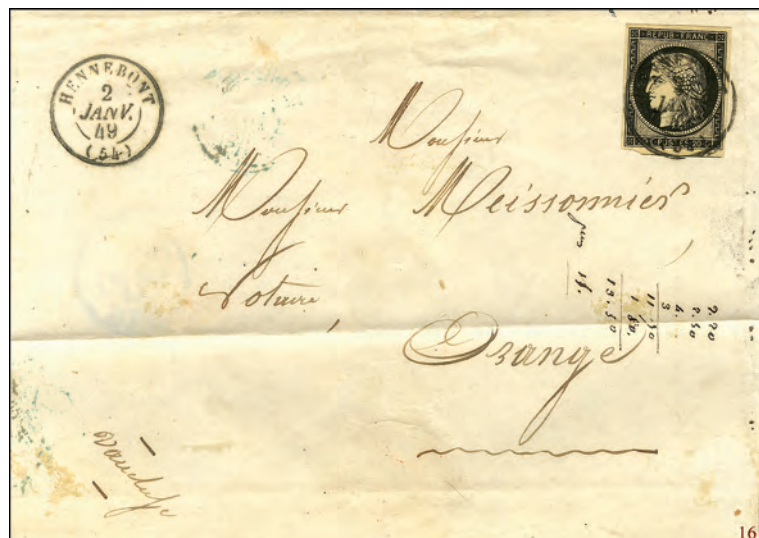 HENNEBONT
2
JANV.
49
(54)
REPUB. FRANC.
POSTES
Monsieur
Monsieur Meissonnier
Notaire,
Orange
Vaucluse
2.20
2.50
4.
3
11.70
1.80.
13.50
15.
16